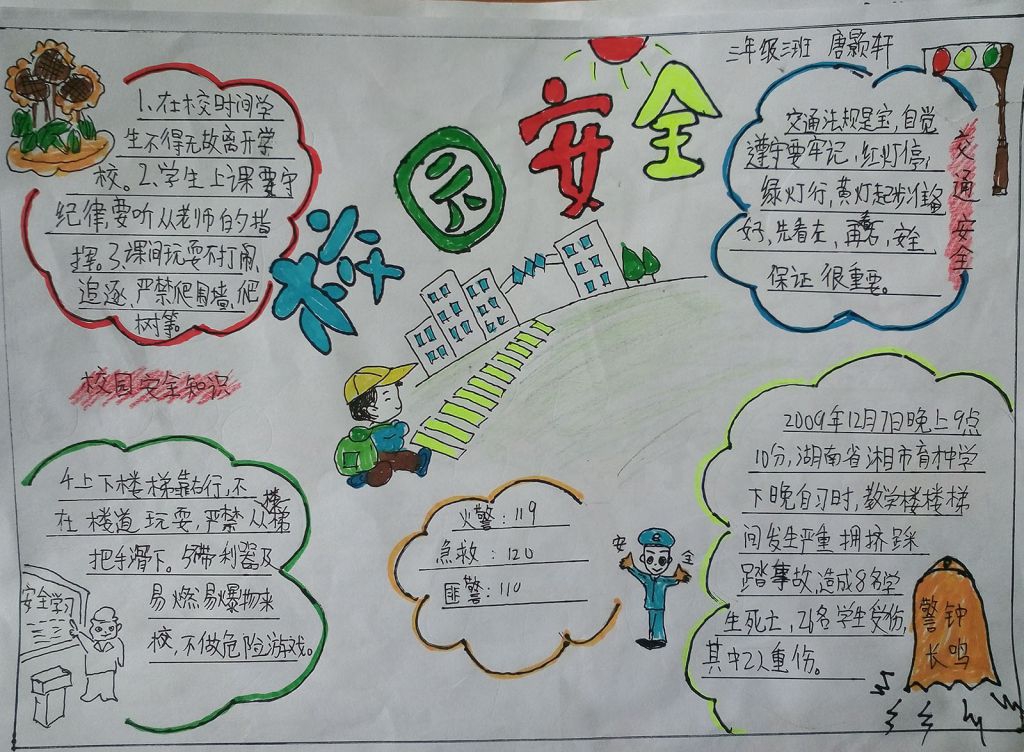 校园安全
三年级三班 唐颢轩
1、在校时间学
生不得无故离开学
校。2、学生上课要守
纪律,要听从老师的指
挥。3、课间玩耍不打闹、
追逐,严禁爬围墙、爬
树等。
校园安全知识
4上下楼梯靠右行,不
在楼道玩耍,严禁从楼梯
把手滑下。5带利器及
易燃易爆物来
校,不做危险游戏。
安全学习
火警:119
急救:120
匪警:110
安全
交通法规是宝,自觉
遵守要牢记,红灯停,
绿灯行,黄灯起步准备
好,先看左,再看右,安全
保证很重要。
交通安全
2009年12月7日晚上9点
10分,湖南省湘市育才中学
下晚自习时,教学楼楼梯
间发生严重拥挤踩
踏事故,造成8名学
生死亡,26名学生受伤,
其中2人重伤。
警钟
长鸣